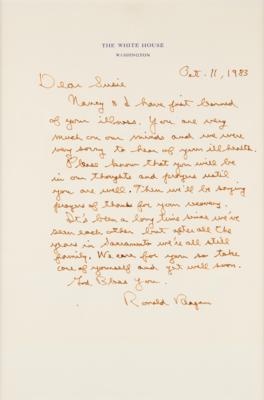 THE WHITE HOUSE
WASHINGTON
Oct. 11, 1983
Dear Susie
Nancy & I have just learned
of your illness. You are very
much on our minds and we were
very sorry to hear of your ill health.
Please know that you will be
in our thoughts and prayers until
you are well. Then we'll be saying
prayers of thanks for your recovery.
It's been a long time since we've
seen each other but after all the
years in Sacramento we're all still
family. We care for you so take
care of yourself and get well soon.
God Bless You.
Ronald Reagan